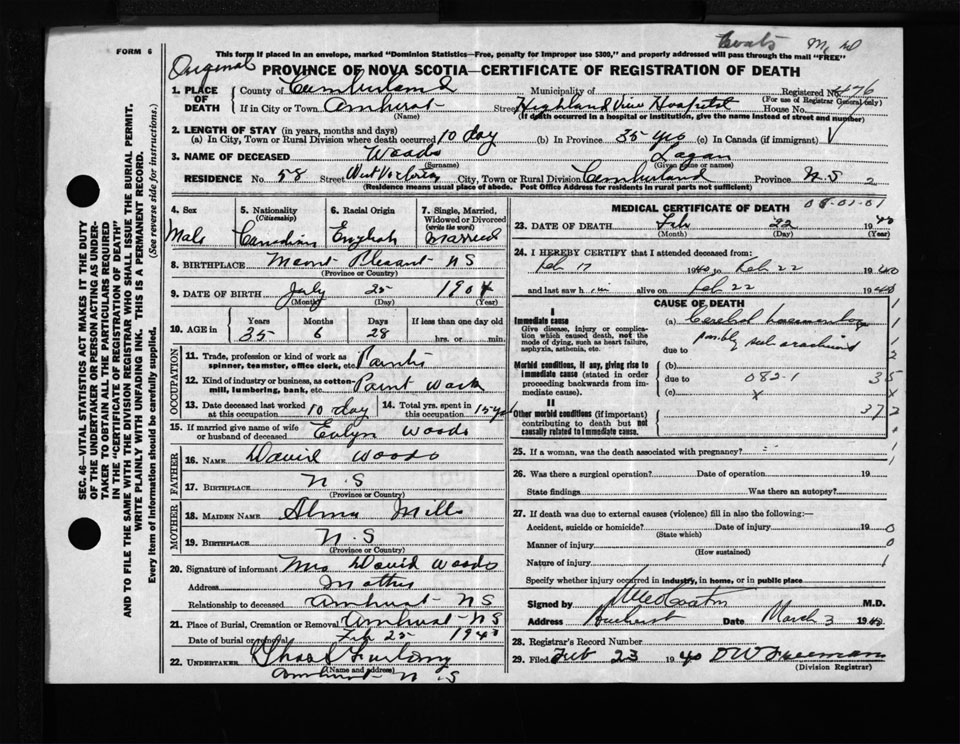 Coats M. D
FORM 6
This form if placed in an envelope, marked "Dominion Statistics—Free, penalty for improper use $300," and properly addressed will pass through the mail "FREE"
Original PROVINCE OF NOVA SCOTIA—CERTIFICATE OF REGISTRATION OF DEATH
1. PLACE OF DEATH County of Cumberland Municipality of Registered No. 476
(For use of Registrar General only)
If in City or Town Amherst Street Highland View Hospital House No.
(Name) (If death occurred in a hospital or institution, give the name instead of street and number)
2. LENGTH OF STAY (in years, months and days)
(a) In City, Town or Rural Division where death occurred 10 day (b) In Province 35 yrs (c) In Canada (if immigrant)
3. NAME OF DECEASED Woods Logan
(Surname) (Given name or names)
RESIDENCE No. 58 Street West Victoria City, Town or Rural Division Cumberland Province N.S 2
(Residence means usual place of abode. Post Office Address for residents in rural parts not sufficient)
SEC. 46—VITAL STATISTICS ACT MAKES IT THE DUTY
OF THE UNDERTAKER OR PERSON ACTING AS UNDER-
TAKER TO OBTAIN ALL THE PARTICULARS REQUIRED
IN THE "CERTIFICATE OF REGISTRATION OF DEATH"
AND TO FILE THE SAME WITH THE DIVISION REGISTRAR WHO SHALL ISSUE THE BURIAL PERMIT.
WRITE PLAINLY WITH UNFADING INK. THIS IS A PERMANENT RECORD.
Every item of information should be carefully supplied. (See reverse side for instructions.)
4. Sex 5. Nationality (Citizenship) 6. Racial Origin 7. Single, Married, Widowed or Divorced (write the word)
Male Canadian English Married
8. BIRTHPLACE Mount Pleasant NS
(Province or Country)
9. DATE OF BIRTH July 25 1904
(Month) (Day) (Year)
10. AGE in Years Months Days If less than one day old
35 6 28 hrs. or min.
OCCUPATION
11. Trade, profession or kind of work as
spinner, teamster, office clerk, etc. Painter
12. Kind of industry or business, as cotton-
mill, lumbering, bank, etc. Paint Work
13. Date deceased last worked at this occupation 10 day 14. Total yrs. spent in this occupation 15 yrs
15. If married give name of wife
or husband of deceased Evlyn Woods
FATHER
16. NAME David Woods
17. BIRTHPLACE N.S
(Province or Country)
MOTHER
18. MAIDEN NAME Alma Mills
19. BIRTHPLACE N.S
(Province or Country)
20. Signature of informant Mrs David Woods
Address Mother
Relationship to deceased Amherst NS
21. Place of Burial, Cremation or Removal Amherst NS
Date of burial or removal Feb 25 1940
22. UNDERTAKER Chas Furlong
(Name and address)
Amherst N.S
MEDICAL CERTIFICATE OF DEATH 08-01-01
23. DATE OF DEATH Feb 22 1940
(Month) (Day) (Year)
24. I HEREBY CERTIFY that I attended deceased from:
Feb 17 1940 to Feb 22 1940
and last saw him alive on Feb 22 1940
CAUSE OF DEATH
I
Immediate cause (a) Cerebral haemorrhage
Give disease, injury or complica-
tion which caused death, not the
mode of dying, such as heart failure,
asphyxia, asthenia, etc.
possibly sub arachnoid
due to
Morbid conditions, if any, giving rise to
immediate cause (stated in order
proceeding backwards from im-
mediate cause).
(b)
due to 082-1 35
(c) x
II
Other morbid conditions (if important)
contributing to death but not
causally related to immediate cause. 37 2
25. If a woman, was the death associated with pregnancy?
26. Was there a surgical operation? Date of operation 19
State findings Was there an autopsy?
27. If death was due to external causes (violence) fill in also the following:—
Accident, suicide or homicide? Date of injury 19 0
(State which)
Manner of injury 0
(How sustained)
Nature of injury 1
Specify whether injury occurred in industry, in home, or in public place
Signed by M.D.
Address Amherst Date March 3 1940
28. Registrar's Record Number
29. Filed Feb 23 1940 D W Freeman
(Division Registrar)